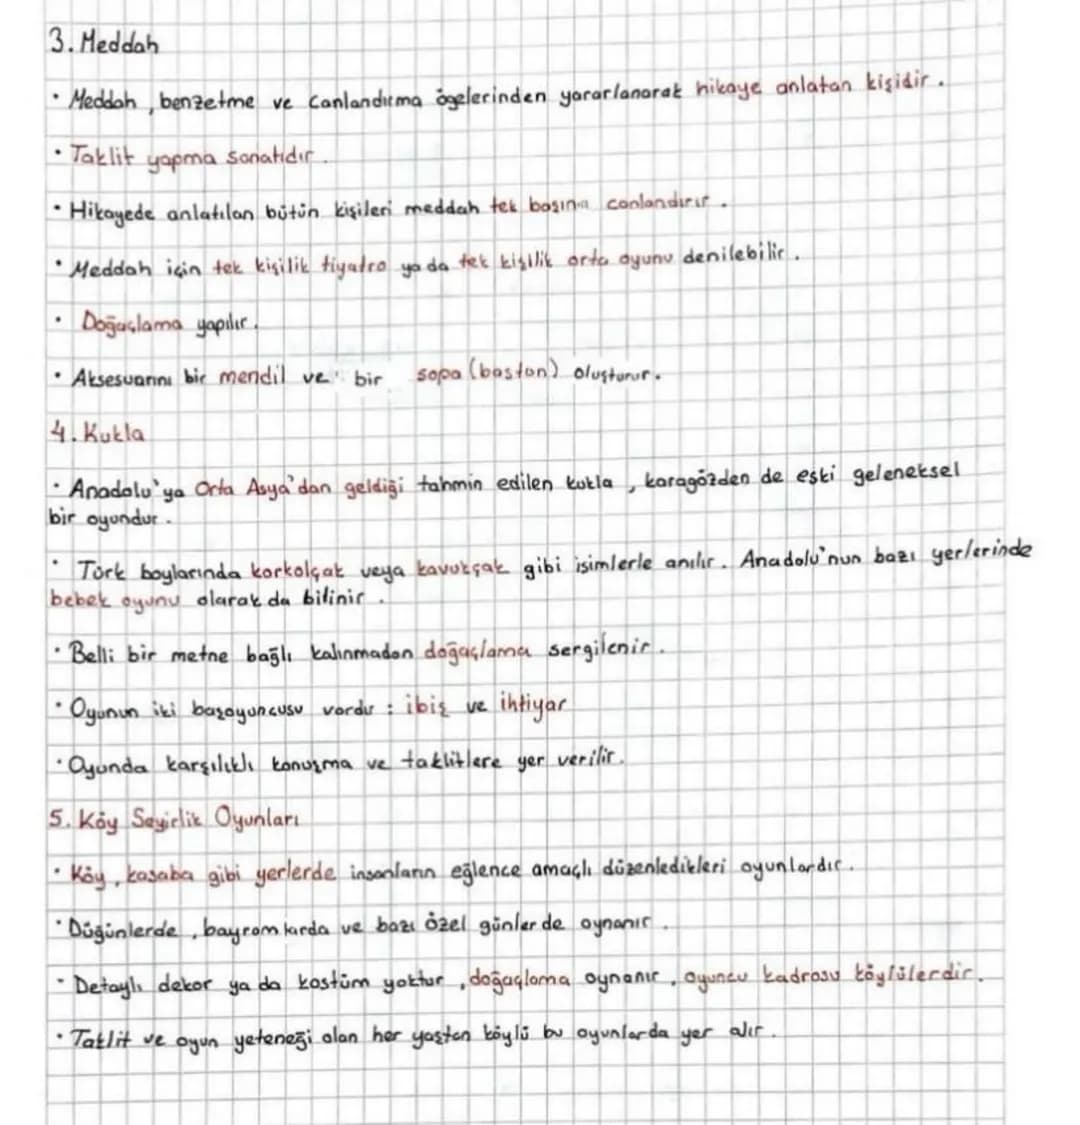 3. Meddah
• Meddah, benzetme ve canlandırma ögelerinden yararlanarak hikaye anlatan kişidir.
• Taklit yapma sanatıdır.
• Hikayede anlatılan bütün kişileri meddah tek başına canlandırır.
• Meddah için tek kişilik tiyatro ya da tek kişilik orta oyunu denilebilir.
• Doğaçlama yapılır.
• Aksesuarını bir mendil ve bir sopa (baston) oluşturur.
4. Kukla
• Anadolu'ya Orta Asya'dan geldiği tahmin edilen kukla, karagözden de eski geleneksel
bir oyundur.
• Türk boylarında korkolçak veya kavukçak gibi isimlerle anılır. Anadolu'nun bazı yerlerinde
bebek oyunu olarak da bilinir.
• Belli bir metne bağlı kalınmadan doğaçlama sergilenir.
• Oyunun iki başoyuncusu vardır : ibiş ve ihtiyar
• Oyunda karşılıklı konuşma ve taklitlere yer verilir.
5. Köy Seyirlik Oyunları
• Köy, kasaba gibi yerlerde insanların eğlence amaçlı düzenledikleri oyunlardır.
• Düğünlerde, bayramlarda ve bazı özel günlerde oynanır.
• Detaylı dekor ya da kostüm yoktur, doğaçlama oynanır, oyuncu kadrosu köylülerdir.
• Taklit ve oyun yeteneği olan her yaştan köylü bu oyunlarda yer alır.